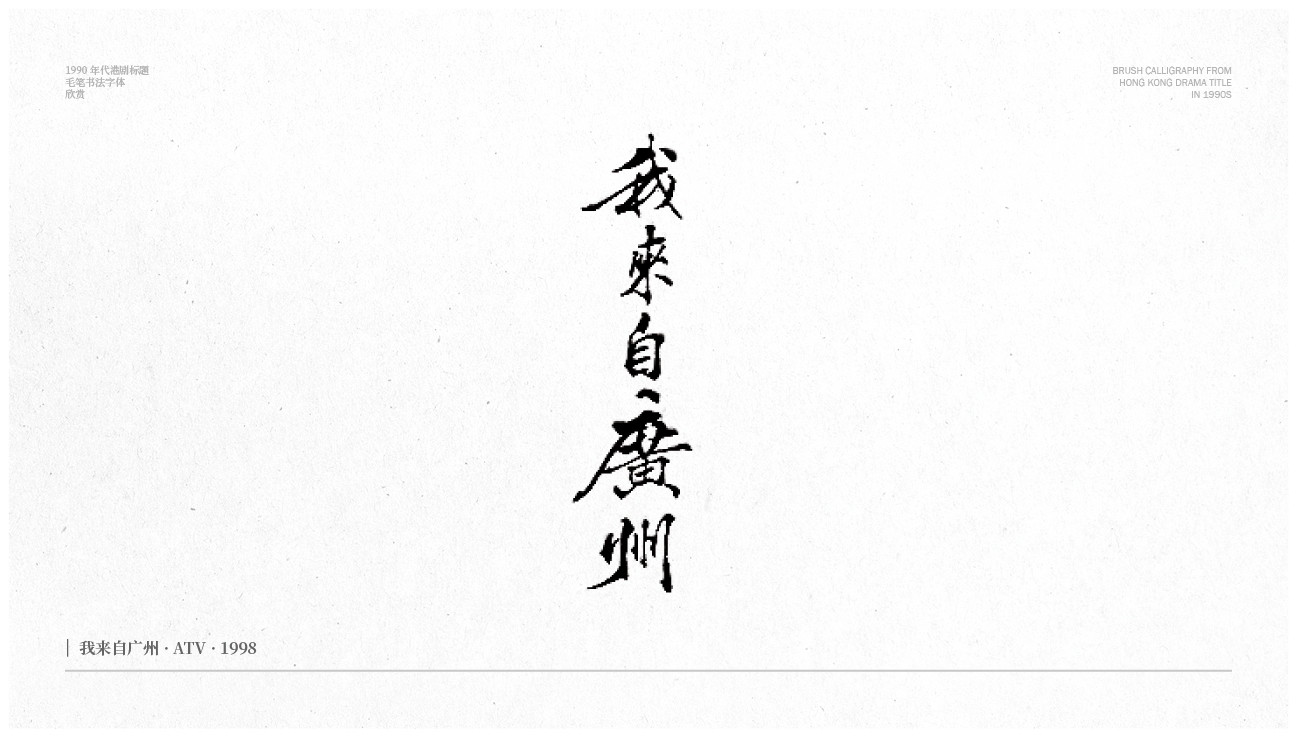 1990 年代港剧标题
毛笔书法字体
欣赏
BRUSH CALLIGRAPHY FROM
HONG KONG DRAMA TITLE
IN 1990S
我來自廣州
我来自广州 · ATV · 1998